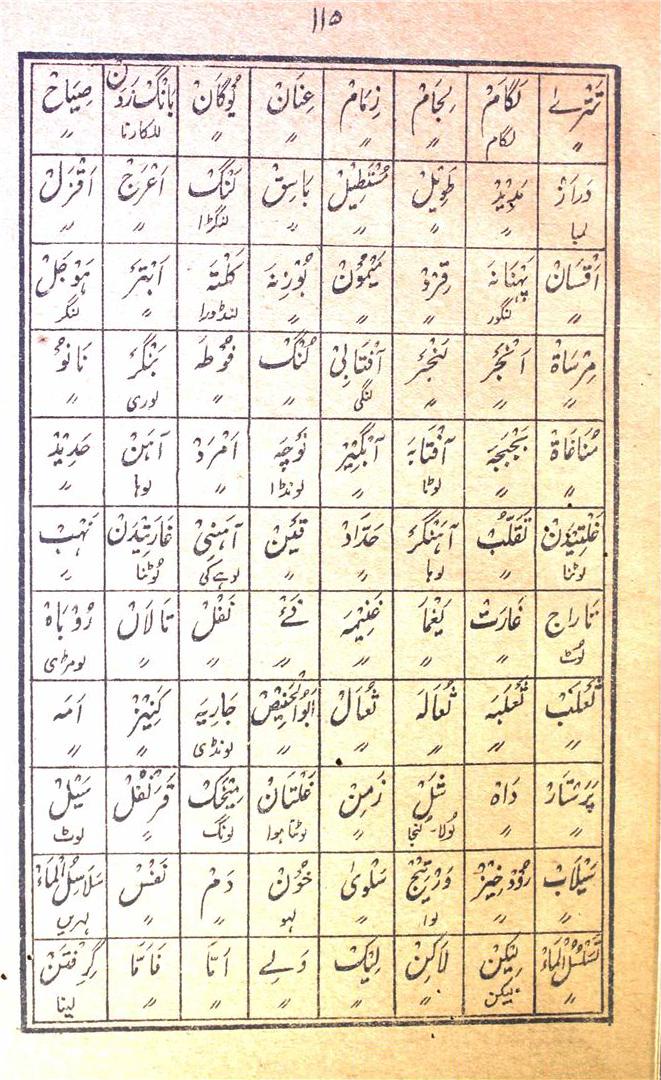 ۱۱۵
تَتَرے لَگام لِجَام زِمَام عِنَان یُوگَان بَانگ زَدَن صِیَاح
" لگام " " " " للکارنا "
دَرَاز مَدِیْد طَوِیْل مُسْتَطِیْل بَاسِق لَنْگ اَعْرَج اَقْزَل
لمبا " " " " لنگڑا " "
اَفْسَان پَہْنَانَہ قِرْد مَیْمُوْن بُوْزِنَہ کَلْتَہ اَبْتَر ہَوْجَل
" لنگور " " " لنڈورا " لنگر
مِرْسَاة اَنْجَر لَنْجَر آفْتَابِی لُنْگ فُوْطَہ بَنْگَر نَانُوْ
" " " لنگی " " لوری "
مُنَاغَاة بَجْبَجَہ آفْتَابَہ آبْگِیْر نَوْچَہ اَمْرَد آہَن حَدِیْد
" " لوٹا " لونڈا " لوہا "
غَلْتِیْدَن تَقَلُّب آہَنْگَر حَدَّاد قَیْن آہَنِی غَارَتِیْدَن نَہْب
لوٹنا " لوہار " " لوہے کی لُوٹنا "
تَارَاج غَارَت یَغْمَا غَنِیْمَہ فَئْ نَفْل تَالَان رُوْبَاہ
لُوٹ " " " " " " لومڑی
ثَعْلَب ثَعْلَبَہ ثُعَالَہ ثُعَال اَبُوالْحَنِیْص جَارِیَہ کَنِیْز اَمَہ
" " " " " لونڈی " "
پَرَسْتَار دَاہ شَل زَمِن غَلْتَان مِیْخَک قَرَنْفُل سَیْل
" " لُولا۔ لنجا " لوٹتا ہوا لونگ " لوٹ
سَیْلَاب رُوْدخِیْز وَرْتِیْج سَلْوٰی خُوْن دَم نَفْس سَلَاسِلُ الْمَاء
" " لوا " لہو " " لہریں
تَسَلْسُلُ الْمَاء لِیْکِن لَاکِن لِیْک وَلے اَمَّا فَاَمَّا گِرِفْتَن
" لیکن " " " " " لینا